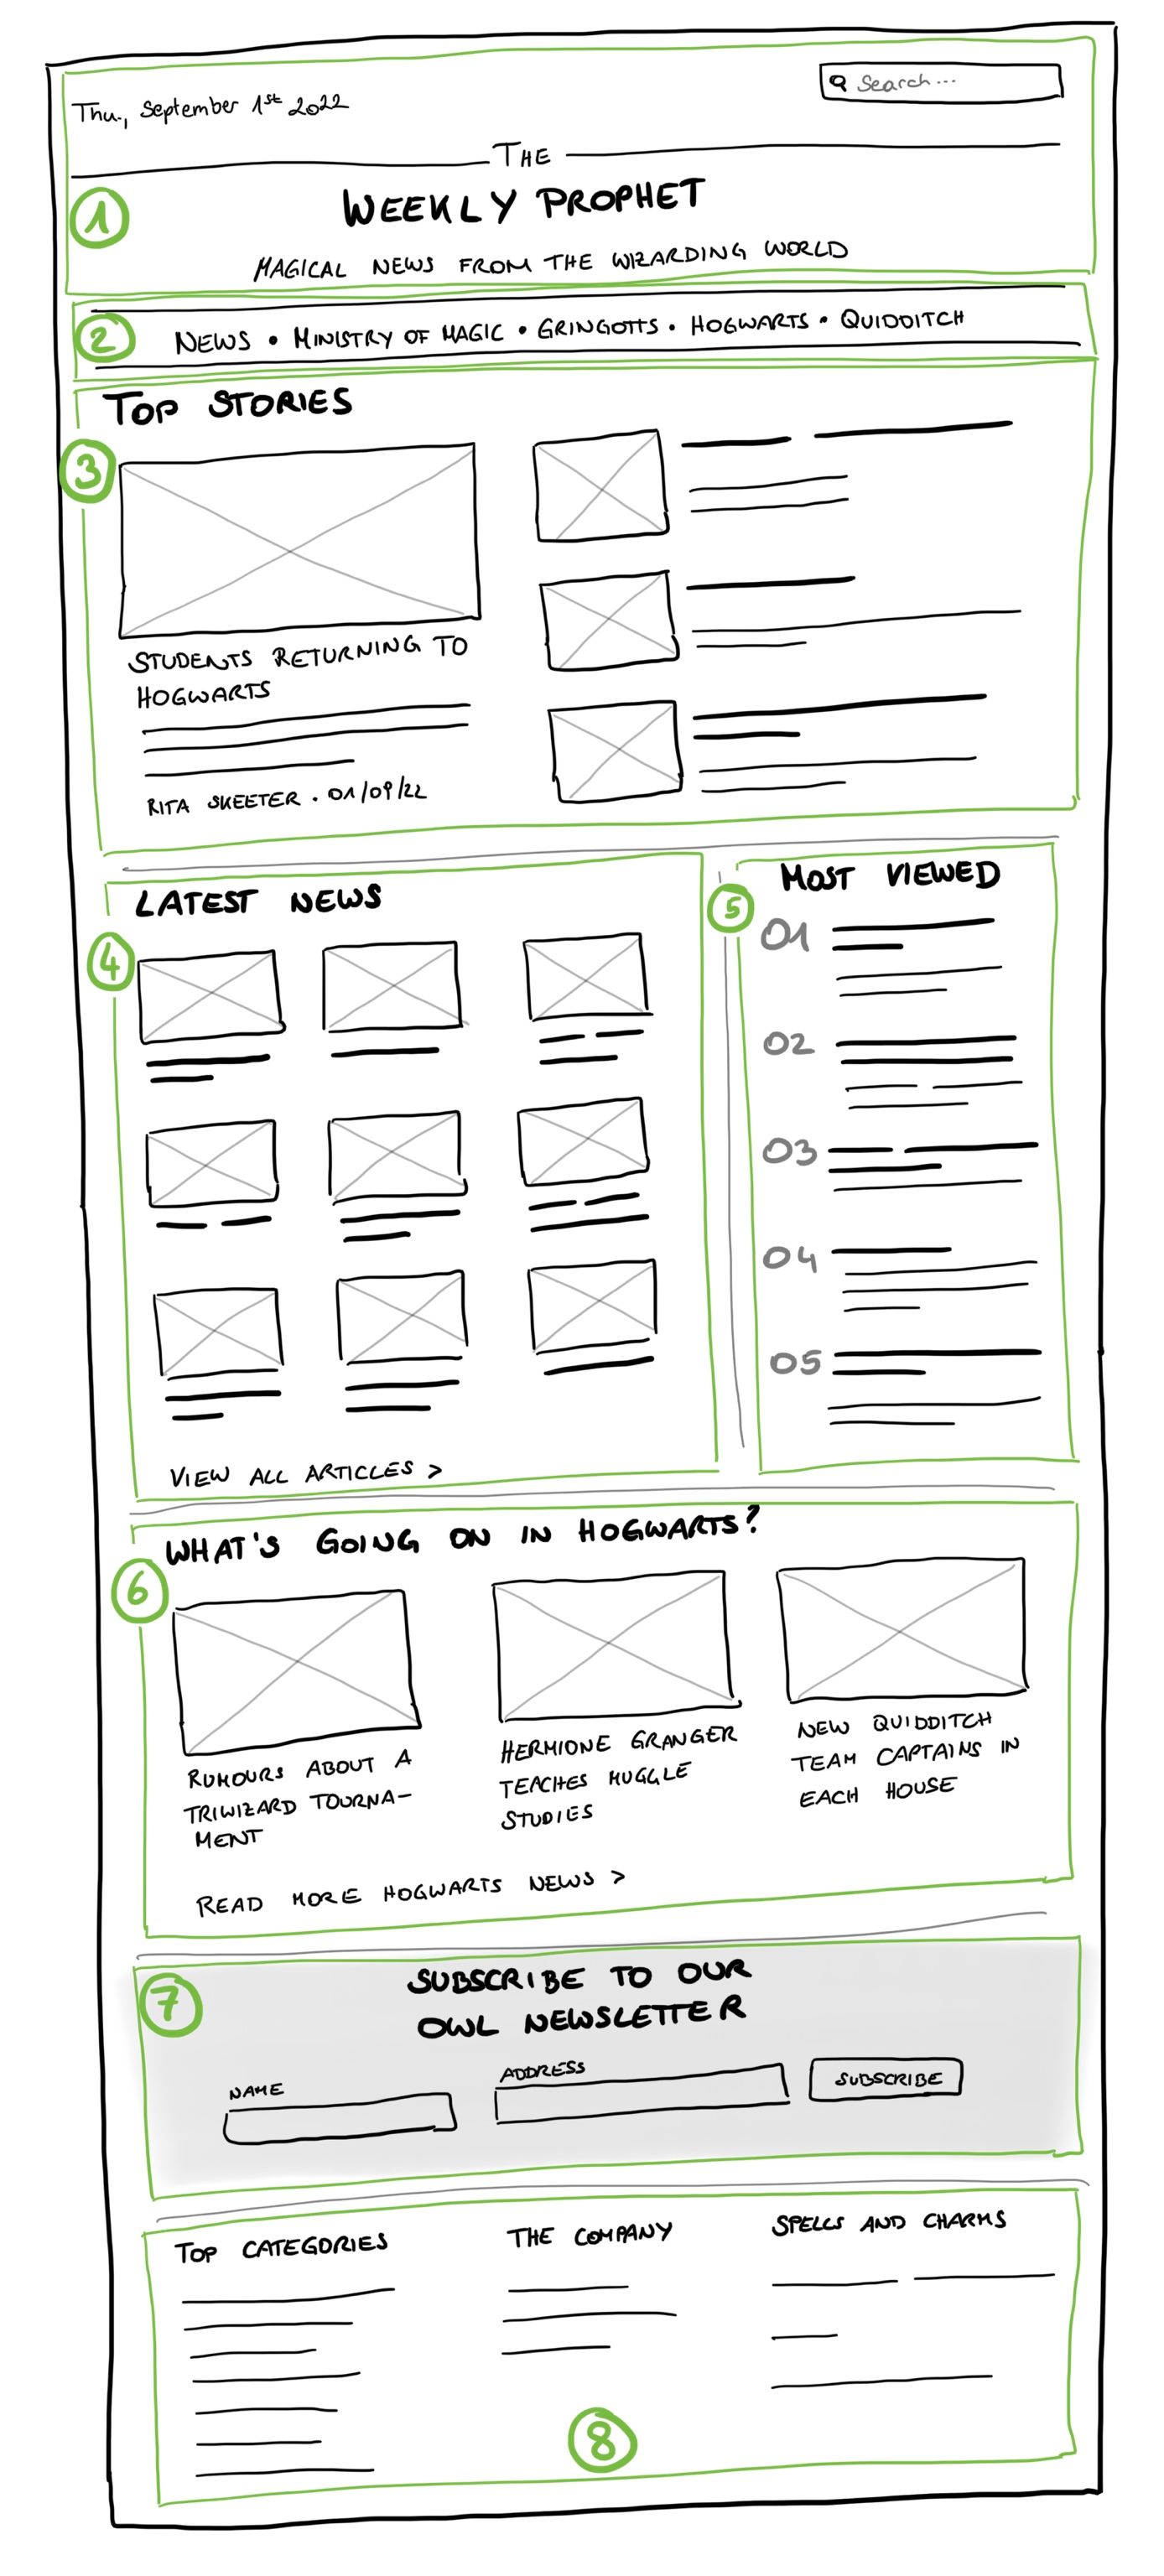 Thu., September 1st 2022
Search...
THE
WEEKLY PROPHET
MAGICAL NEWS FROM THE WIZARDING WORLD
1
2
NEWS • MINISTRY OF MAGIC • GRINGOTTS • HOGWARTS • QUIDDITCH
TOP STORIES
3
STUDENTS RETURNING TO
HOGWARTS
RITA SKEETER . 01/09/22
LATEST NEWS
4
VIEW ALL ARTICLES >
5
MOST VIEWED
01
02
03
04
05
WHAT'S GOING ON IN HOGWARTS?
6
RUMOURS ABOUT A
TRIWIZARD TOURNA-
MENT
HERMIONE GRANGER
TEACHES MUGGLE
STUDIES
NEW QUIDDITCH
TEAM CAPTAINS IN
EACH HOUSE
READ MORE HOGWARTS NEWS >
7
SUBSCRIBE TO OUR
OWL NEWSLETTER
NAME
ADDRESS
SUBSCRIBE
TOP CATEGORIES
THE COMPANY
SPELLS AND CHARMS
8